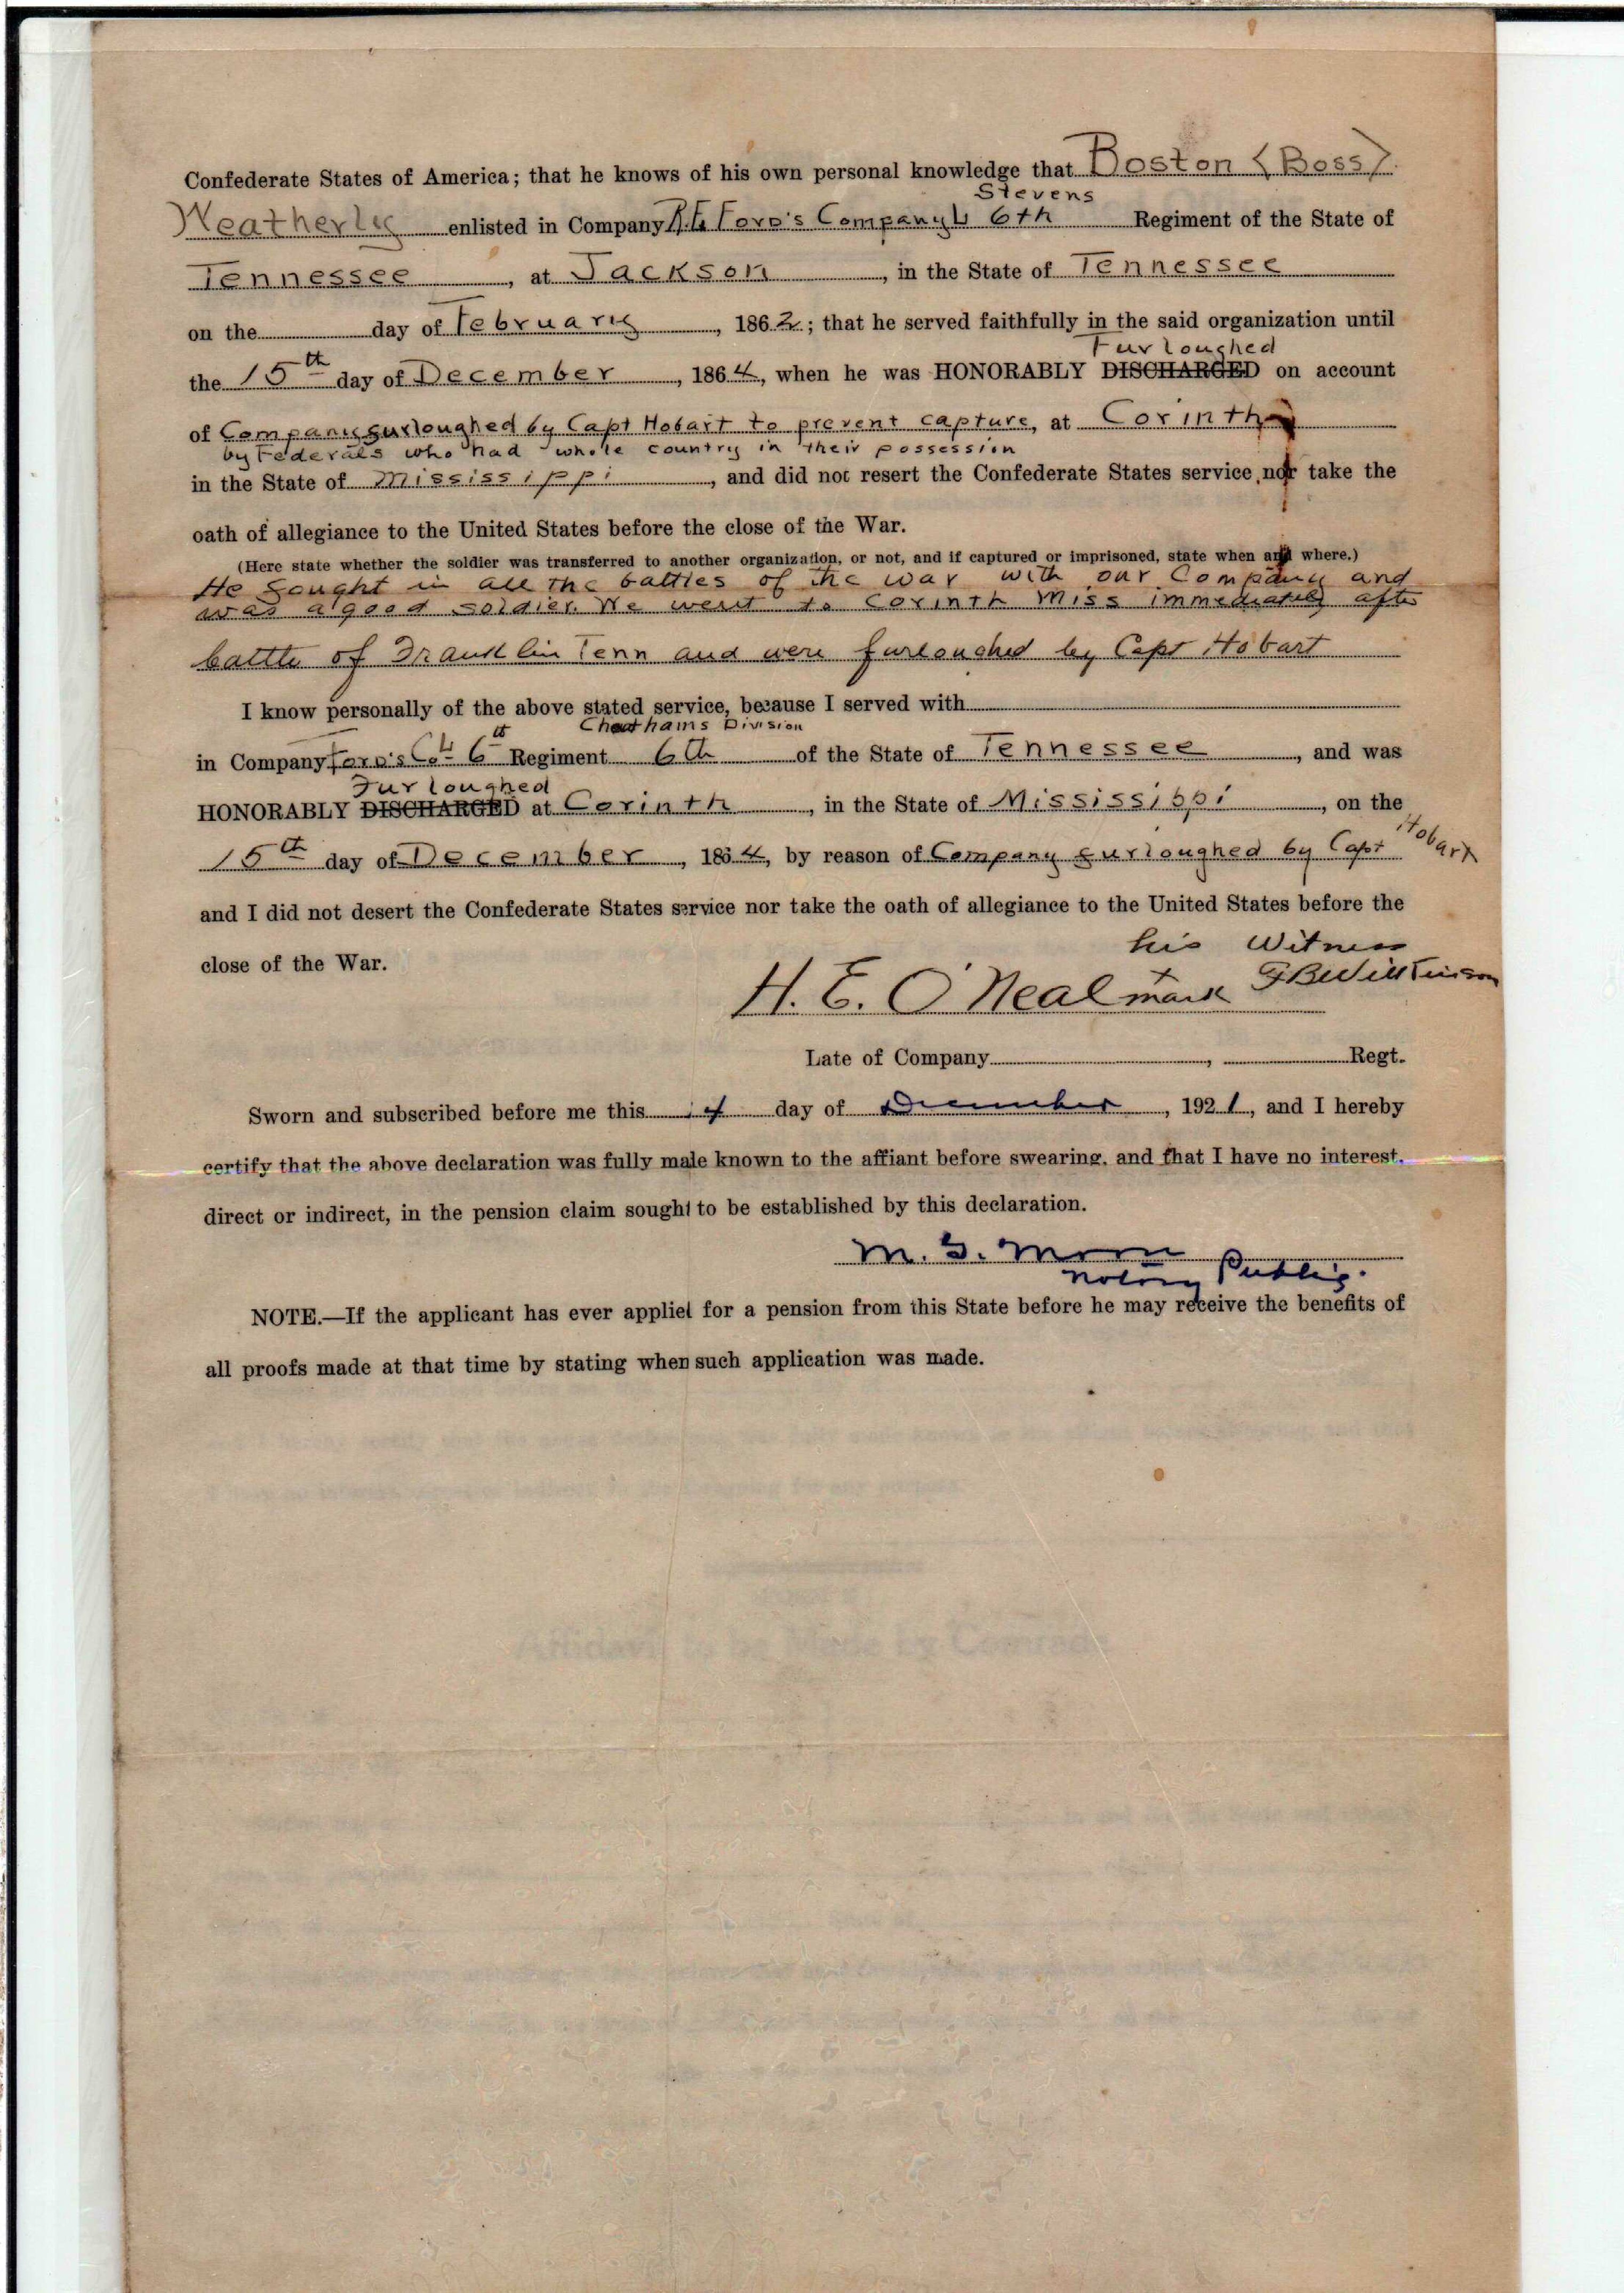 Confederate States of America; that he knows of his own personal knowledge that Boston (Boss)
Stevens
Weatherly enlisted in Company R.E. Ford's Company L 6th Regiment of the State of
Tennessee, at Jackson, in the State of Tennessee
on the day of February, 1862; that he served faithfully in the said organization until
Furloughed
the 15th day of December, 1864, when he was HONORABLY DISCHARGED on account
of Company furloughed by Capt Hobart to prevent capture, at Corinth
by Federals who had whole country in their possession
in the State of Mississippi, and did not resert the Confederate States service, nor take the
oath of allegiance to the United States before the close of the War.
(Here state whether the soldier was transferred to another organization, or not, and if captured or imprisoned, state when and where.)
He fought in all the battles of the war with our Company and
was a good soldier. We went to Corinth Miss immediately after
battle of Franklin Tenn and were furloughed by Capt Hobart
I know personally of the above stated service, because I served with
Cheathams Division
in Company Ford's Co L 6th Regiment 6th of the State of Tennessee, and was
Furloughed
HONORABLY DISCHARGED at Corinth, in the State of Mississippi, on the
15th day of December, 1864, by reason of Company furloughed by Capt Hobart
and I did not desert the Confederate States service nor take the oath of allegiance to the United States before the
his Witness
close of the War.
H. E. O'Neal x mark G B Wilkinson
Late of Company, Regt.
Sworn and subscribed before me this day of December, 1921, and I hereby
certify that the above declaration was fully made known to the affiant before swearing, and that I have no interest,
direct or indirect, in the pension claim sought to be established by this declaration.
M. G.
Notary Public.
NOTE.—If the applicant has ever applied for a pension from this State before he may receive the benefits of
all proofs made at that time by stating when such application was made.
Affidavit to be Made by Comrade